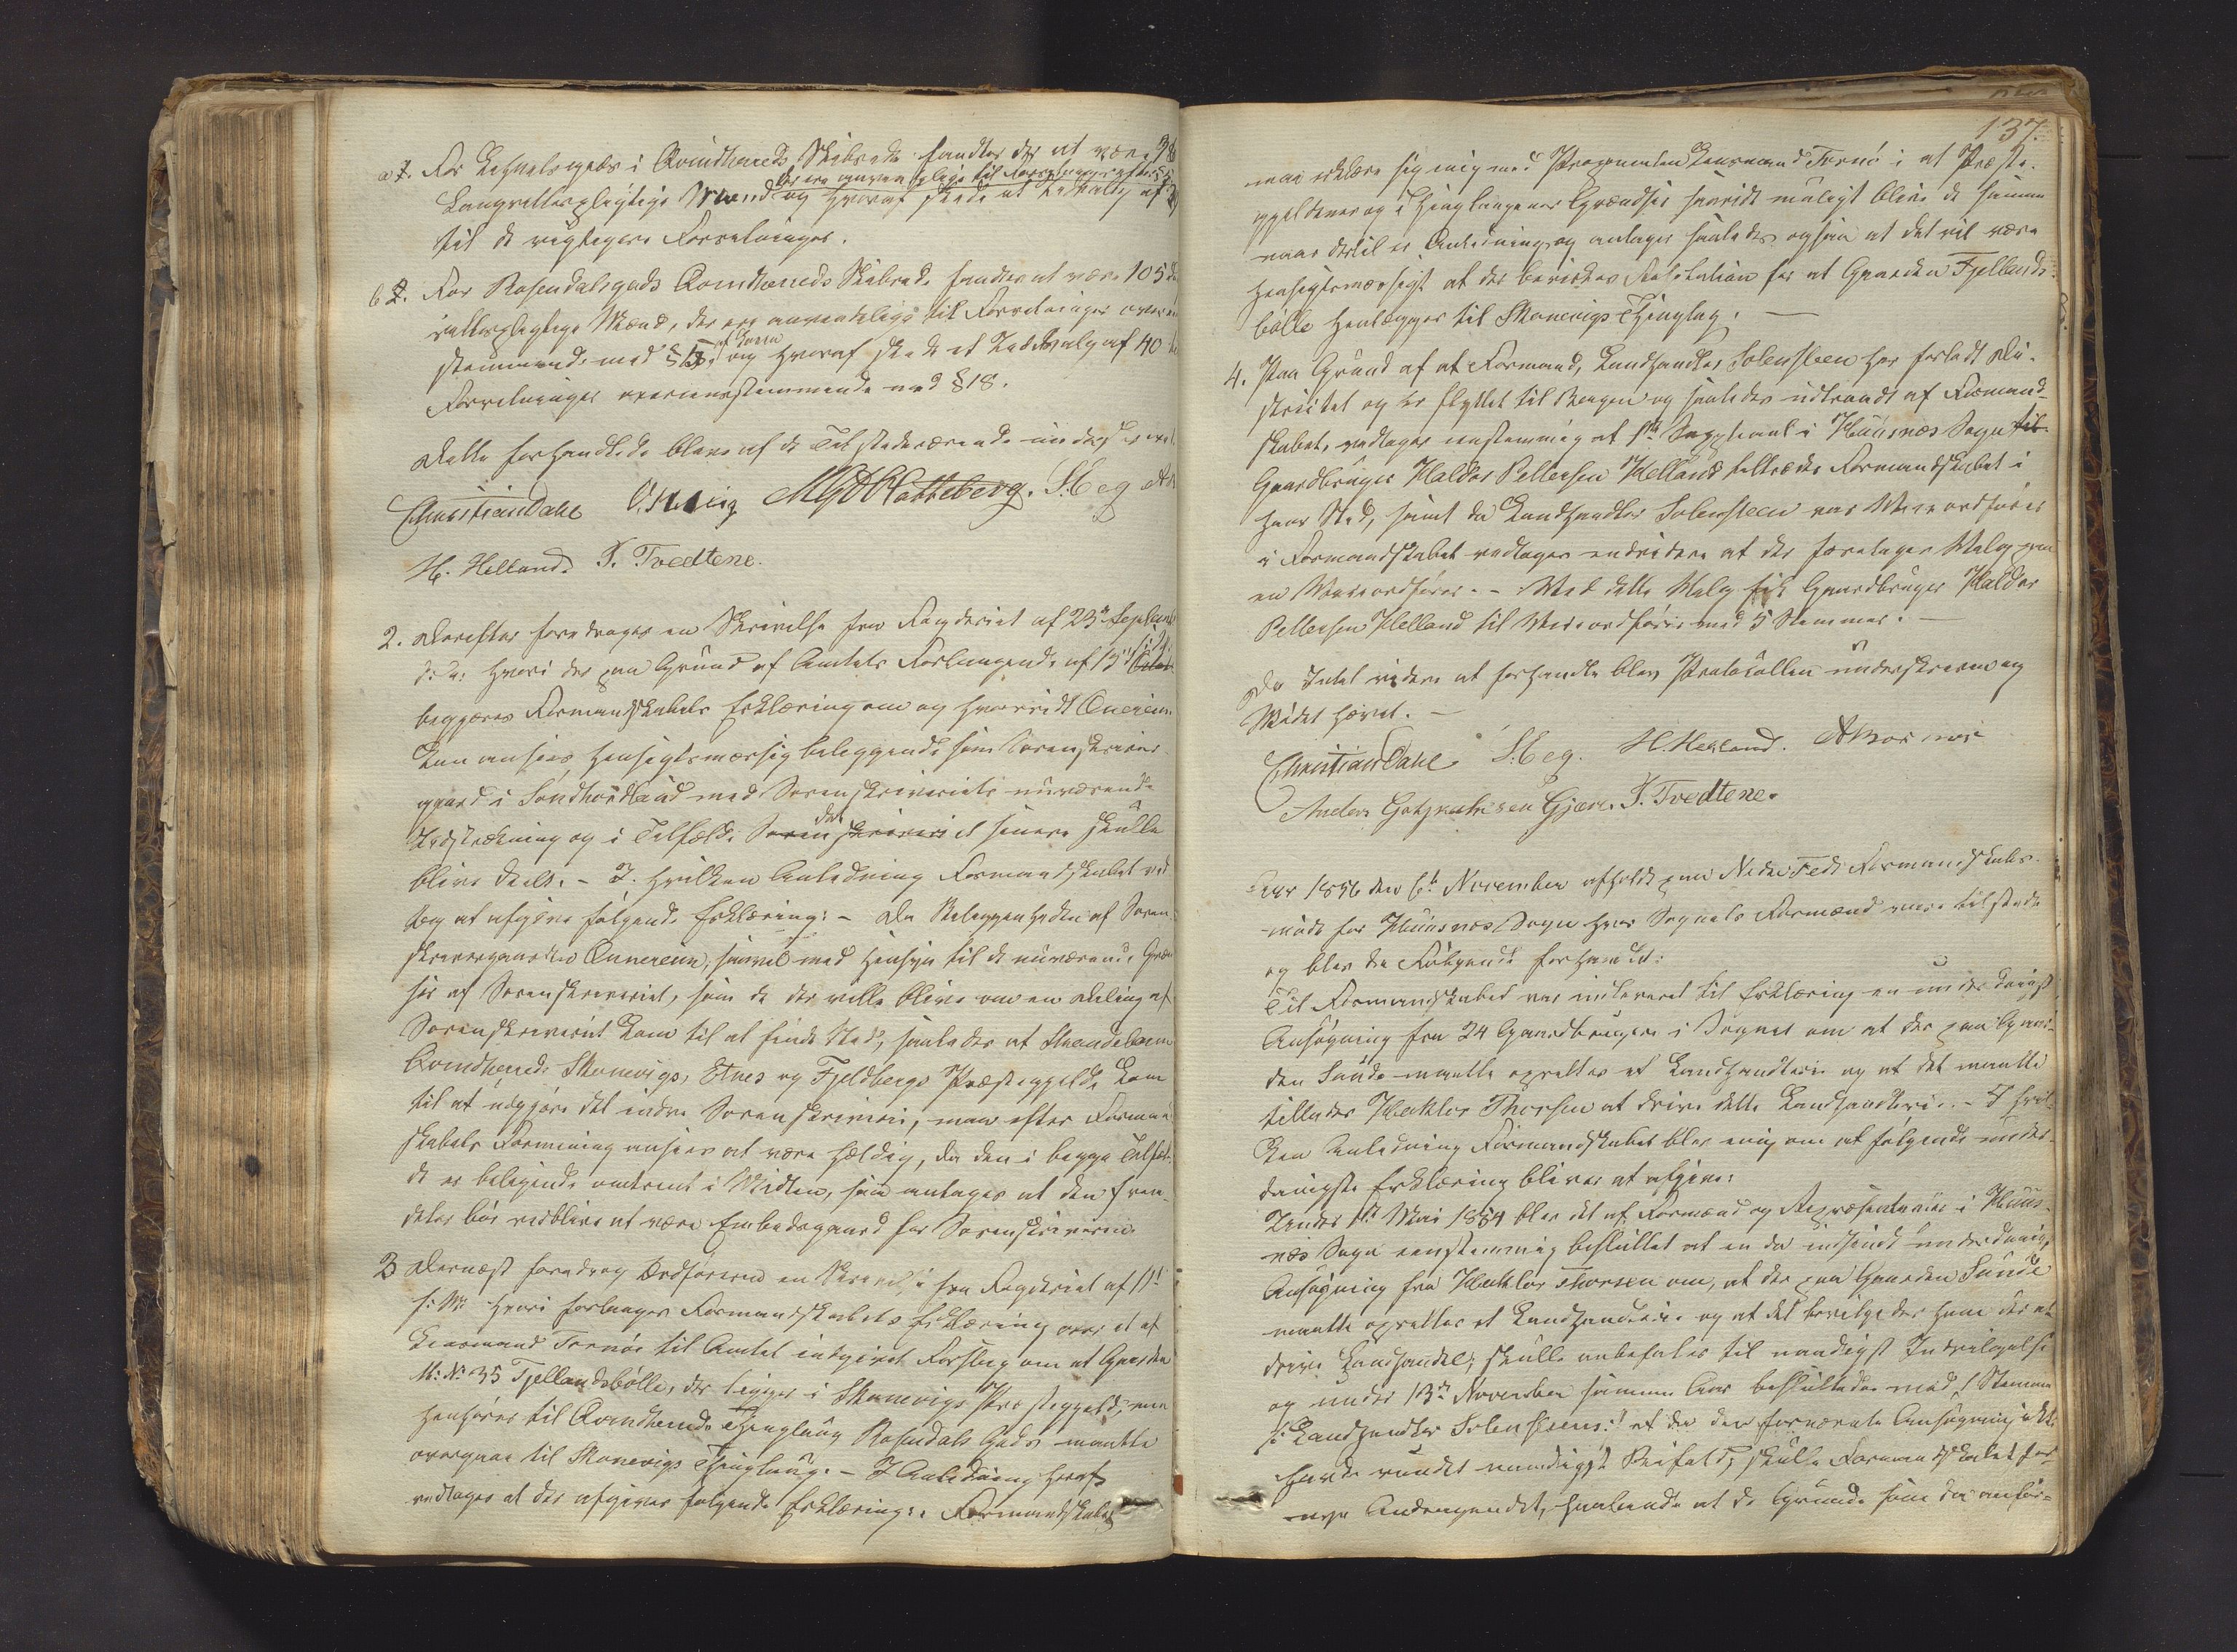 a 1. For Lehnsgods i Qvindhereds Skibrede fandtes der at være 38
Laugrettespligtige Mænd der ere anvendelige til Forretninger efter § 5
og hvoraf skede et Udvalg af
til de vigtigere Forretninger.
b 2. For Rosendalsgods Qvindhereds Skibrede fandtes at være 105
rettespligtige Mænd, der ere anvendelige til Forretninger overeens
stemmende med § 15 af Loven og hvoraf skede et Udvalg af 40 til
Forretninger overeensstemmende med § 18.
Dette forhandlede blev af de Tilstedeværende underskrevet
Christian Dahl MGD Hatteberg. S. Eeg
H. Helland. T. Tvedtene.
2. Derefter foredroges en Skrivelse fra Fogderiet af 23de Septemb
d: A: hvori der paa Grund af Amtets Forlangende af 15de s. M.
begjæres Formandskabets Erklæring om og hvorvidt Onereim
kan ansees hensigtsmæssig beliggende som Sorenskriver-
gaard i Søndhordland med Sorenskriveriets nuværende
Udstrækning og i Tilfælde det senere skulle
blive deelt. – I hvilken Anledning Formandskabet ved
tog at afgive følgende Erklæring: – Da Beliggenheden af Soren-
skrivergaarden Onnereim, saavel med Hensyn til de nuværende Græn
ser af Sorenskriveriet, som de der ville blive om en Deling af
Sorenskriveriet kom til at finde Sted, saaledes at Strandebarm
Qvindherreds Skonevigs, Etnes og Fjeldbergs Præstegjelde kom
til at udgjøre det indre Sorenskriveri, maa efter Formand
skabets Formening ansees at være heldig, da den i begge Tilfæl-
de er beliggende omtrent i Midten, saa antages at den frem-
deles bør vedblive at være Embedsgaard for Sorenskriveren.
3 Dernæst foredrog Ordføreren en Skrivelse fra Fogderiet af 11te
s: M: hvori forlanges Formandskabets Erklæring over et af
Leensmand Tornøe til Amtet indgivet Forslag om at Gaarden
M: No 35 Fjellandsbølle, der ligger i Skonevigs Præstegjeld, men
henhører til Qvindherreds Thinglaug Rosendals Gods maatte
overgaae til Skonevigs Thinglaug. – I Anledning heraf
vedtoges at der afgives følgende Erklæring: Formandskabet
137.
maa erklære sig enig med Proponenten Leensmand Tornøe i at Præste-
gjeldenes og Thinglaugenes Grændser saavidt muligt blive de samme
naar dertil er Anledning og antager saaledes ogsaa at det vil være
hensigtsmæssigt at der bevirkes Resolution for at Gaarden Fjellands-
bølle henlægges til Skonevigs Thinglag. –
4. Paa Grund af at Formand, Landhandler Solensteen har forladt Di-
strictet og er flyttet til Bergen og saaledes udtraadt af Formand-
skabet, vedtages eenstemmig at 1ste Suppleant i Huusnæs Sogn
Gaardbruger Haldor Pettersen Helland tiltræder Formandskabet i
hans Sted, samt da Landhandler Solensteen var Viceordfører
i Formandskabet vedtages endvidere at der foretages Valg paa
en Viceordfører. – Ved dette Valg fik Gaardbruger Haldor
Pettersen Helland til Viceordfører med 5 Stemmer. –
Da Intet videre at forhandle blev Protocollen underskreven og
Mødet hævet. –
Christian Dahl. S. Eeg. H. Helland.
Anders Gotskalksen Gjære. T. Tvedtene.
Aar 1856 den 6te November afholdt paa Nedre Fedt Formandskabs-
møde for Huusnæs Sogn hvor Sognets Formænd vare tilstede
og blev da Følgende forhandlet:
Til Formandskabet var indleveret til Erklæring en underdanigst
Ansøgning fra 24 Gaardbrugere i Sognet om at der paa Gaar-
den Sunde maatte oprettes et Landhandlerie og at det maatte
tillades Hecktor Thorsen at drive dette Landhandlerie. – I hvil-
ken Anledning Formandskabet blev enig om at følgende under-
danigste Erklæring bliver at afgive:
Under 1ste Mai 1854 blev det af Formænd og Repræsentanter i Huus-
næs Sogn eenstemmig besluttet at en da indsendt underdanig
Ansøgning fra Hecktor Thorsen om, at der paa Gaarden Sunde
maatte oprettes et Landhandlerie og at det bevilgedes ham der at
drive Landhandel, skulle anbefales til naadigst Indvilgelse
og under 13de November samme Aar besluttedes mod 1 Stemme
/: Landhandler Solensteens :/ at da den fornævnte Ansøgning ikke
havde vundet naadigst Bifald, skulle Formandskabet for-
nye Andragendet, havende at de Grunde som da anfør-